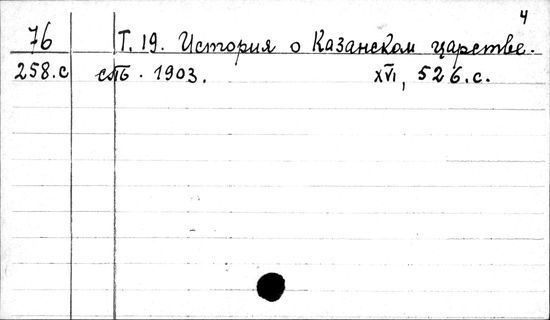 4
76 Т. 19. История о Казанском царстве.
258.с спб. 1903. XVI, 526.с.